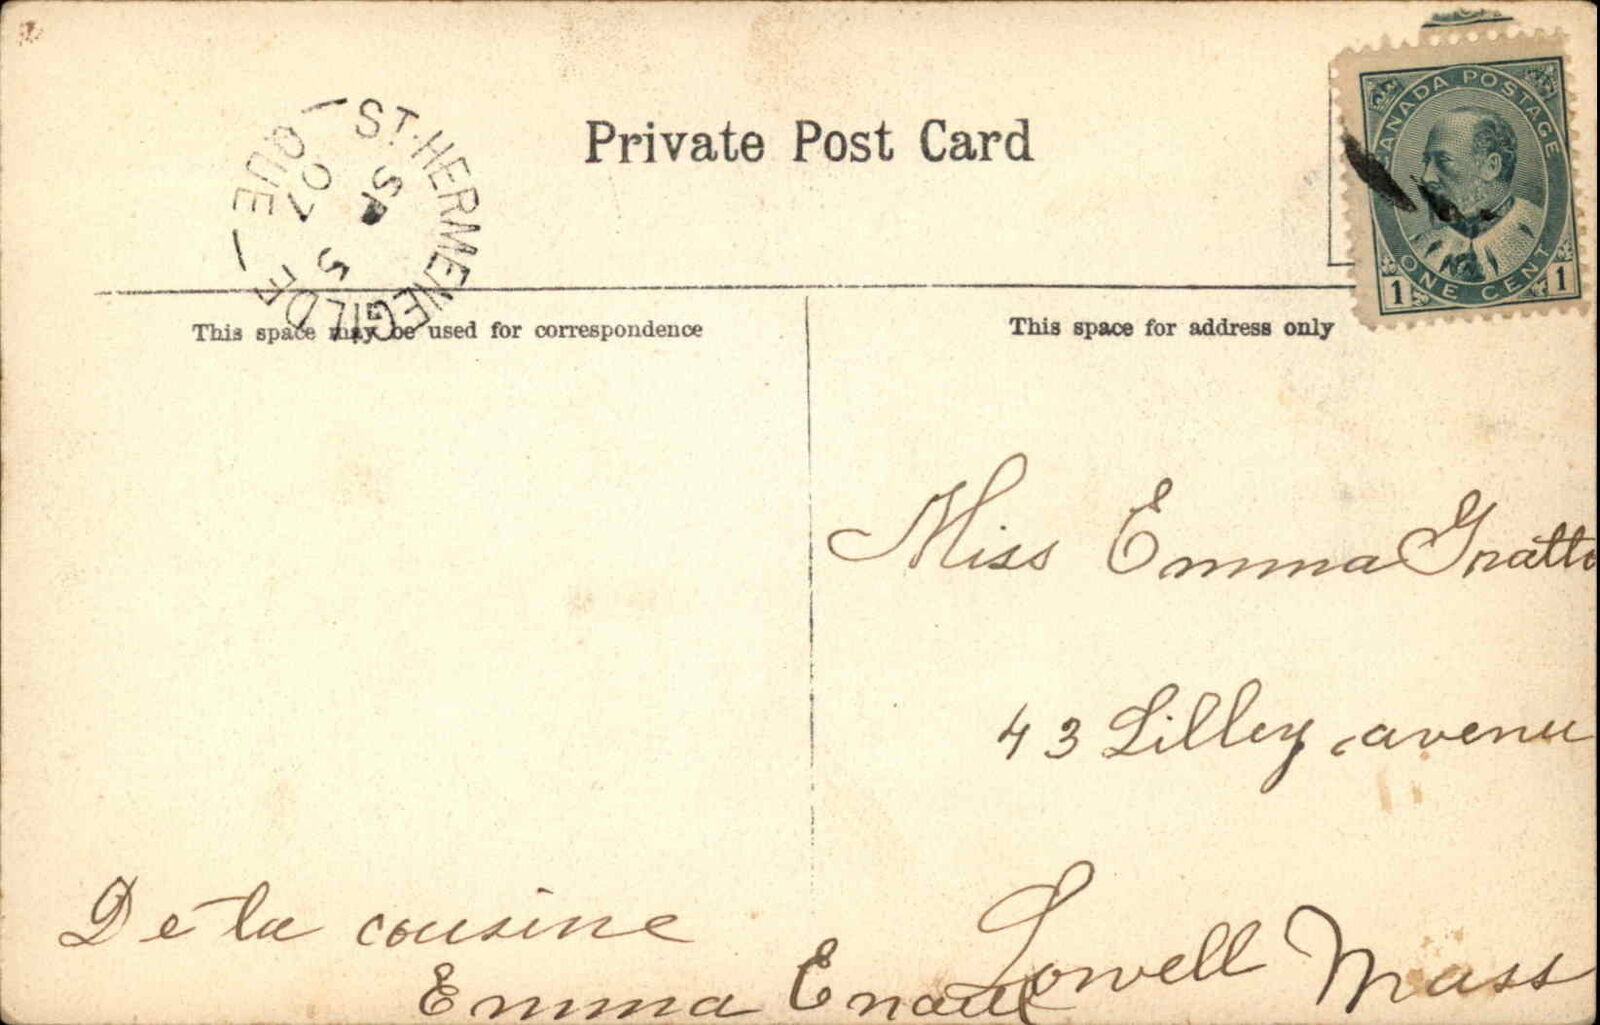 Private Post Card
ST. HERMENEGILDE
QUE
SP 5
07
CANADA POSTAGE
ONE CENT
1 1
This space may be used for correspondence
This space for address only
Miss Emma Gratto
43 Lilley avenu
Lowell Mass
De ta cousine
Emma